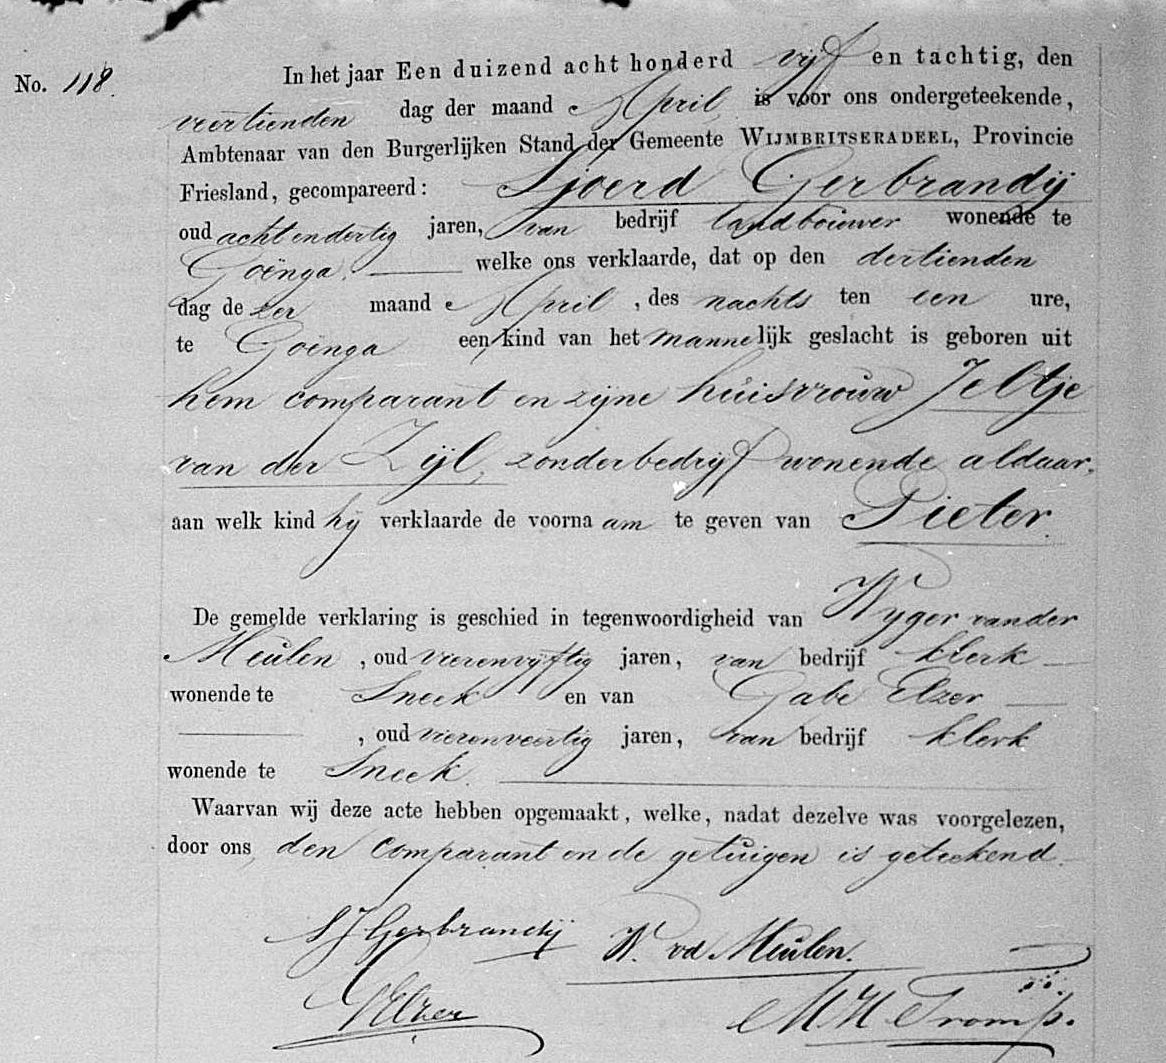 No. 118.
In het jaar Een duizend acht honderd vijf en tachtig, den
veertienden dag der maand April is voor ons ondergeteekende,
Ambtenaar van den Burgerlijken Stand der Gemeente WIJMBRITSERADEEL, Provincie
Friesland, gecompareerd: Sjoerd Gerbrandij
oud achtendertig jaren, van bedrijf landbouwer wonende te
Goënga. welke ons verklaarde, dat op den dertienden
dag de zer maand April, des nachts ten een ure,
te Goënga een kind van het mannelijk geslacht is geboren uit
hem comparant en zijne huisvrouw Jeltje
van der Zijl, zonder bedrijf wonende aldaar,
aan welk kind hij verklaarde de voornaam te geven van Pieter.
De gemelde verklaring is geschied in tegenwoordigheid van Wyger van der
Meulen, oud vierenvijftig jaren, van bedrijf klerk
wonende te Sneek en van Gabe Elzer
, oud vierenveertig jaren, van bedrijf klerk
wonende te Sneek.
Waarvan wij deze acte hebben opgemaakt, welke, nadat dezelve was voorgelezen,
door ons, den comparant en de getuigen is geteekend.
S J Gerbrandij W. vd Meulen.
G Elzer M H Tromp.